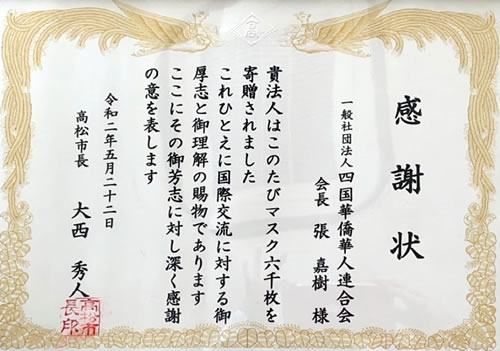 感謝状
一般社団法人 四国華僑華人連合会
会長 張 嘉樹 様
貴法人はこのたびマスク六千枚を
寄贈されました
これひとえに国際交流に対する御
厚志と御理解の賜物であります
ここにその御芳志に対し深く感謝
の意を表します
令和二年五月二十二日
高松市長 大西 秀人
高松市
長印